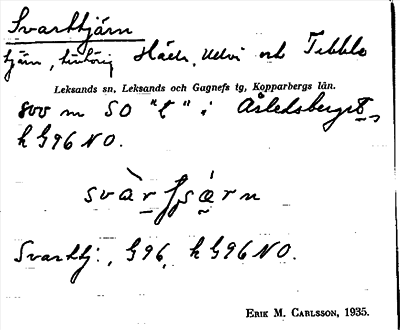 Svarttjärn
tjärn, tillhörig Häll, Ullvi och Tibble
Leksands sn, Leksands och Gagnefs tg, Kopparbergs län.
800 m SO "t" i Åsledsberget,
k G96 NO.
Svarttj:, G96, k G96 NO.
ERIK M. CARLSSON, 1935.